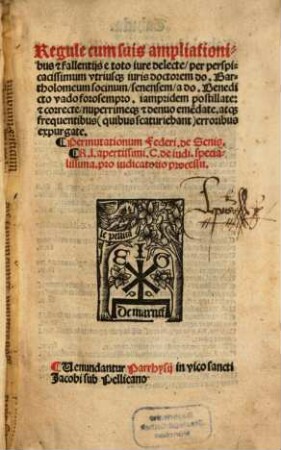 Regule cum suis ampliationi-
bus & fallentijs e toto iure delecte/ per perspi-
cacissimum vtriusq; iuris doctorem do. Bar-
tholomeum socinum/ senensem/ a do. Benedi
cto vado forosempro. iampridem postillate:
& correcte/ nuperrimeq; & denuo emēdate. atq;
frequentibus ( quibus scaturiebant) erroribus
expurgate.
¶ Permutationum Federi. de Senis.
¶ R. l. apertissimi. C. de iudi. specia-
lissima, pro iudicatorio processu.
le pellini
E I G
De marnef
¶ Uenundantur Parrhysij in vico sancti
Jacobi sub Pellicano